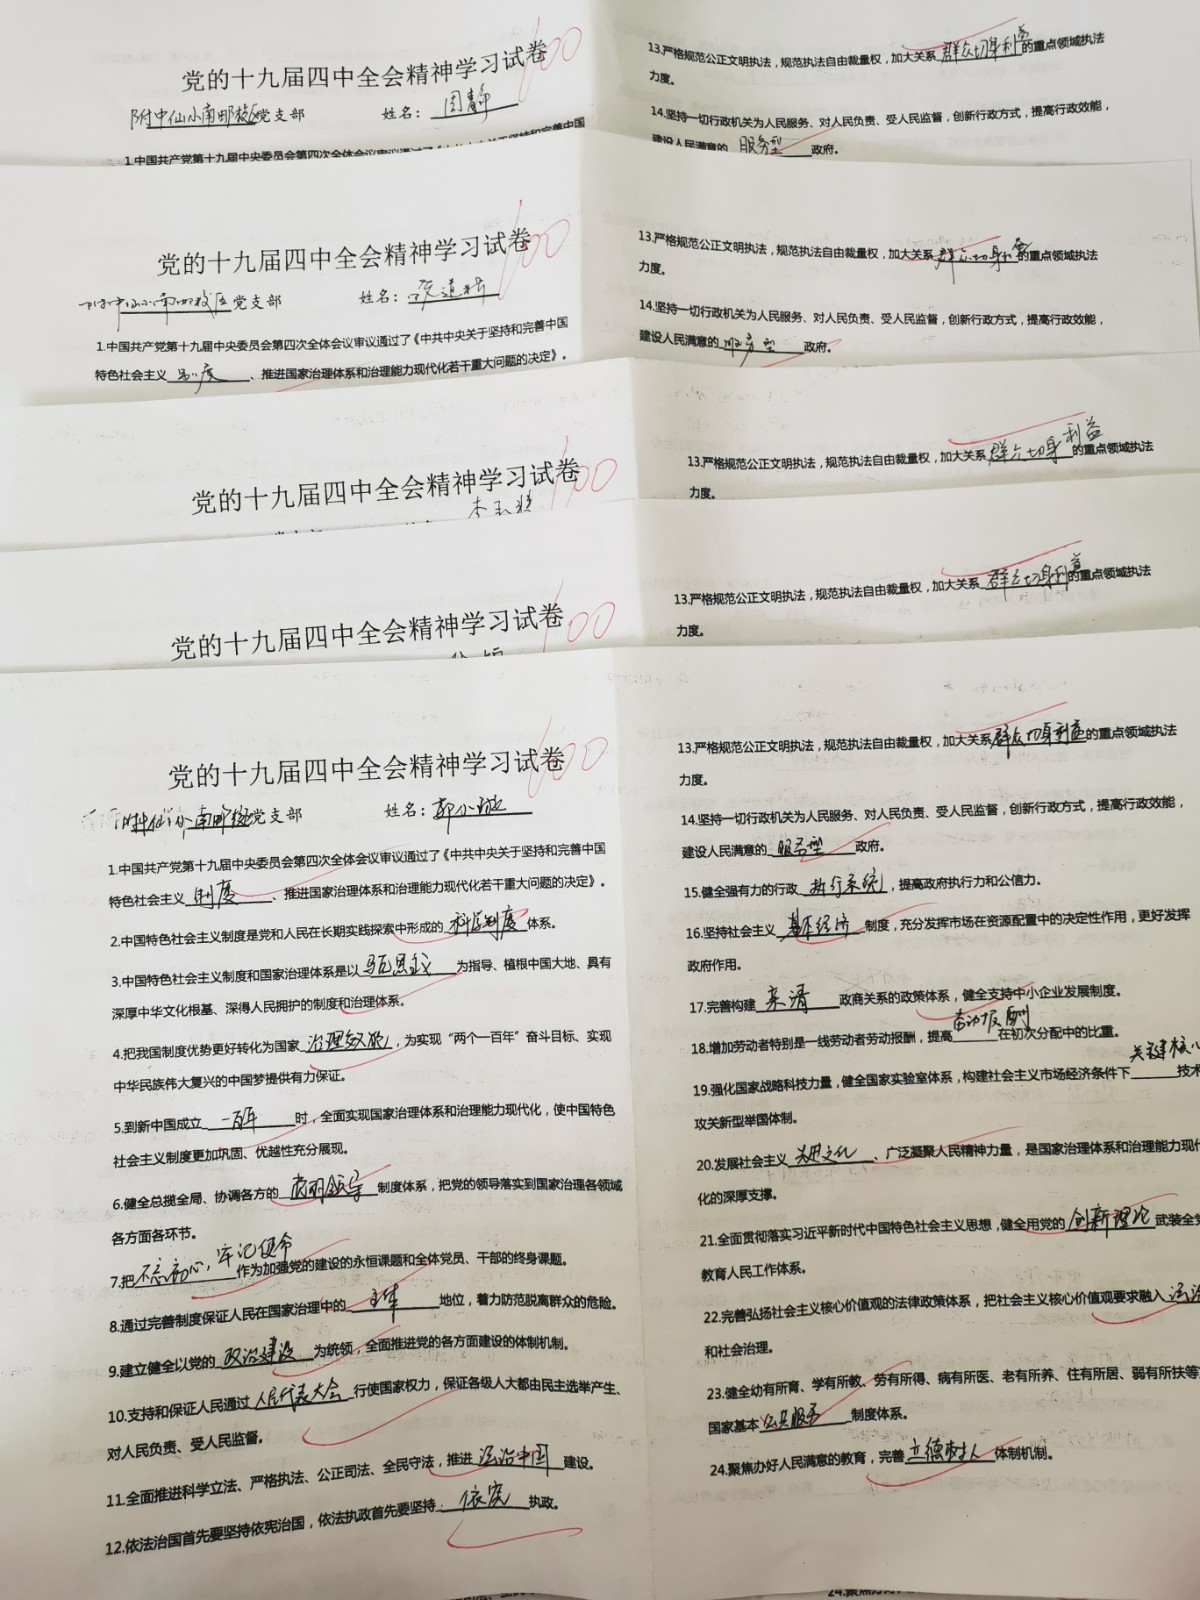 党的十九届四中全会精神学习试卷 100
附中仙小南邮校区党支部 姓名：周静
1.中国共产党第十九届中央委员会第四次全体会议审议通过了《中共中央关于坚持和完善中国
13.严格规范公正文明执法，规范执法自由裁量权，加大关系群众切身利益的重点领域执法
力度。
14.坚持一切行政机关为人民服务、对人民负责、受人民监督，创新行政方式，提高行政效能，
建设人民满意的 服务型 政府。
党的十九届四中全会精神学习试卷 100
南邮校区党支部 姓名：
1.中国共产党第十九届中央委员会第四次全体会议审议通过了《中共中央关于坚持和完善中国
特色社会主义 制度 、推进国家治理体系和治理能力现代化若干重大问题的决定》。
13.严格规范公正文明执法，规范执法自由裁量权，加大关系群众切身利益的重点领域执法
力度。
14.坚持一切行政机关为人民服务、对人民负责、受人民监督，创新行政方式，提高行政效能，
建设人民满意的 服务型 政府。
党的十九届四中全会精神学习试卷 100
13.严格规范公正文明执法，规范执法自由裁量权，加大关系群众切身利益的重点领域执法
力度。
党的十九届四中全会精神学习试卷 100
13.严格规范公正文明执法，规范执法自由裁量权，加大关系群众切身利益的重点领域执法
力度。
党的十九届四中全会精神学习试卷 100
附中仙小南邮校区党支部 姓名：郭小璇
1.中国共产党第十九届中央委员会第四次全体会议审议通过了《中共中央关于坚持和完善中国
特色社会主义 制度 、推进国家治理体系和治理能力现代化若干重大问题的决定》。
2.中国特色社会主义制度是党和人民在长期实践探索中形成的 科学制度 体系。
3.中国特色社会主义制度和国家治理体系是以 马克思主义 为指导、植根中国大地、具有
深厚中华文化根基、深得人民拥护的制度和治理体系。
4.把我国制度优势更好转化为国家 治理效能，为实现“两个一百年”奋斗目标、实现
中华民族伟大复兴的中国梦提供有力保证。
5.到新中国成立 一百年 时，全面实现国家治理体系和治理能力现代化，使中国特色
社会主义制度更加巩固、优越性充分展现。
6.健全总揽全局、协调各方的 党的领导 制度体系，把党的领导落实到国家治理各领域
各方面各环节。
7.把不忘初心，牢记使命作为加强党的建设的永恒课题和全体党员、干部的终身课题。
8.通过完善制度保证人民在国家治理中的 主体 地位，着力防范脱离群众的危险。
9.建立健全以党的 政治建设 为统领，全面推进党的各方面建设的体制机制。
10.支持和保证人民通过 人民代表大会 行使国家权力，保证各级人大都由民主选举产生、
对人民负责、受人民监督。
11.全面推进科学立法、严格执法、公正司法、全民守法，推进 法治中国 建设。
12.依法治国首先要坚持依宪治国，依法执政首先要坚持：依宪 执政。
13.严格规范公正文明执法，规范执法自由裁量权，加大关系群众切身利益的重点领域执法
力度。
14.坚持一切行政机关为人民服务、对人民负责、受人民监督，创新行政方式，提高行政效能，
建设人民满意的 服务型 政府。
15.健全强有力的行政 执行系统，提高政府执行力和公信力。
16.坚持社会主义 基本经济 制度，充分发挥市场在资源配置中的决定性作用，更好发挥
政府作用。
17.完善构建 亲清 政商关系的政策体系，健全支持中小企业发展制度。
18.增加劳动者特别是一线劳动者劳动报酬，提高劳动报酬在初次分配中的比重。
19.强化国家战略科技力量，健全国家实验室体系，构建社会主义市场经济条件下关键核心技术
攻关新型举国体制。
20.发展社会主义 先进文化 、广泛凝聚人民精神力量，是国家治理体系和治理能力现代
化的深厚支撑。
21.全面贯彻落实习近平新时代中国特色社会主义思想，健全用党的 创新理论 武装全党
教育人民工作体系。
22.完善弘扬社会主义核心价值观的法律政策体系，把社会主义核心价值观要求融入 法治
和社会治理。
23.健全幼有所育、学有所教、劳有所得、病有所医、老有所养、住有所居、弱有所扶等
国家基本 公共服务 制度体系。
24.聚焦办好人民满意的教育，完善 立德树人 体制机制。